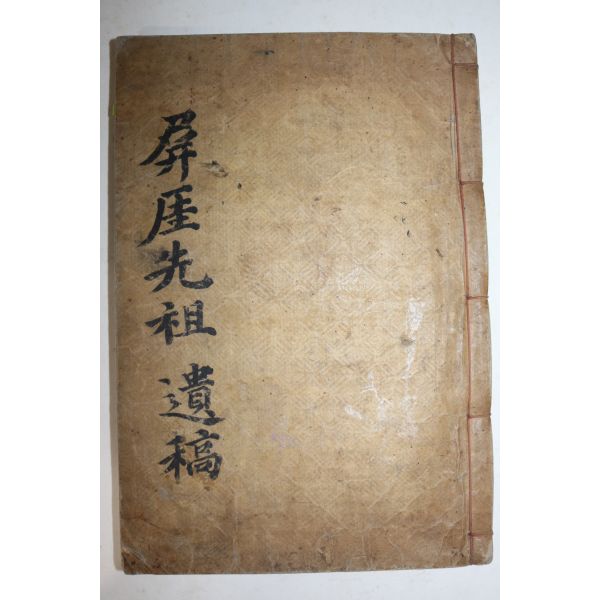 屛厓先祖遺稿